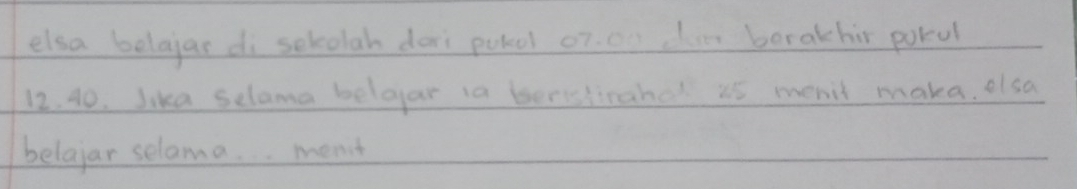 elsa belajar di sekolah dari pukul 07.00 dan berakhir pukul
12.40. Jika selama belajar ia beristirahat 25 menit maka. elsa
belajar selama... menit